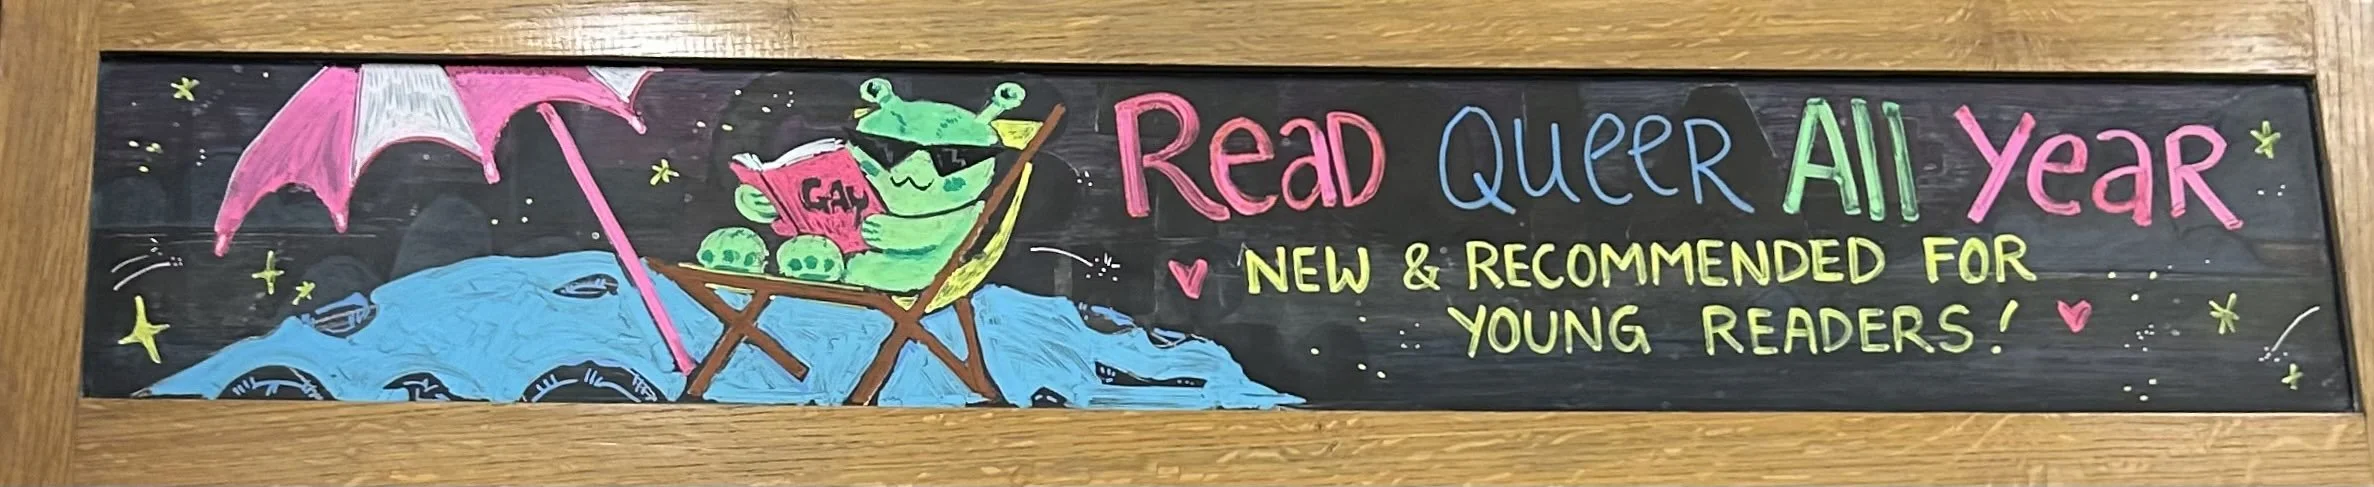 GAY
Read Queer All Year
NEW & RECOMMENDED FOR
YOUNG READERS!